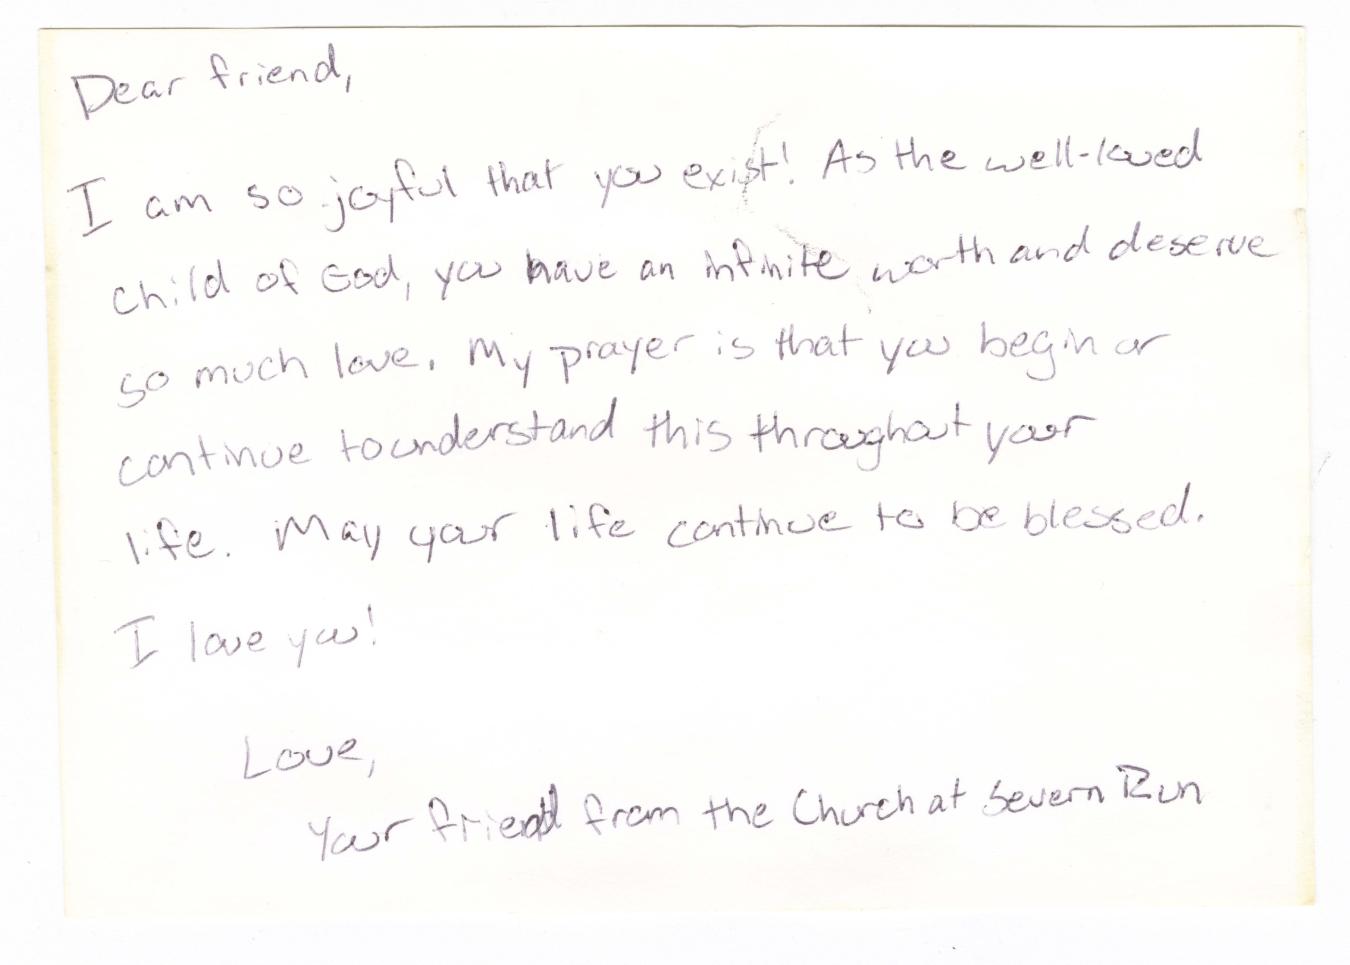 Dear friend,
I am so joyful that you exist! As the well-loved
child of God, you have an infinite worth and deserve
so much love. My prayer is that you begin or
continue to understand this throughout your
life. May your life continue to be blessed.
I love you!
Love,
Your friend from the Church at Severn Run